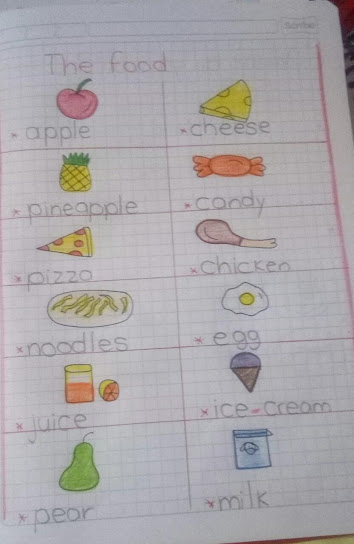 Scribe
The food
* apple
* cheese
* pineapple
* candy
* pizza
* chicken
* noodles
* egg
* juice
* ice-cream
* pear
* milk